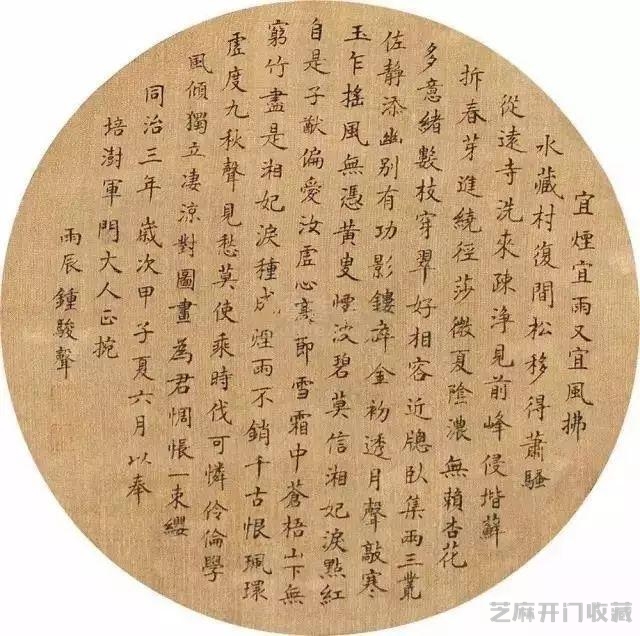 宜煙宜雨又宜風拂
水藏村復間松移得蕭騷
從遠寺洗來疎淨見前峰侵堦蘚
拆春芽迸繞徑莎微夏陰濃無賴杏花
多意緒數枝穿翠好相容近牕臥集兩三叢
佐靜添幽別有功影鏤碎金初透月聲敲寒
玉乍搖風無憑黄叟煙波碧莫信湘妃淚點紅
自是子猷偏愛汝虛心高節雪霜中蒼梧山下無
窮竹盡是湘妃淚種成煙雨不銷千古恨珮環
虛度九秋聲見愁莫使乘時伐可憐伶倫學
風傾獨立凄涼對圖畫為君惆悵一束纓
同治三年歲次甲子夏六月以奉
培澍軍門大人正捥
雨辰鍾駿聲
芝麻开门收藏